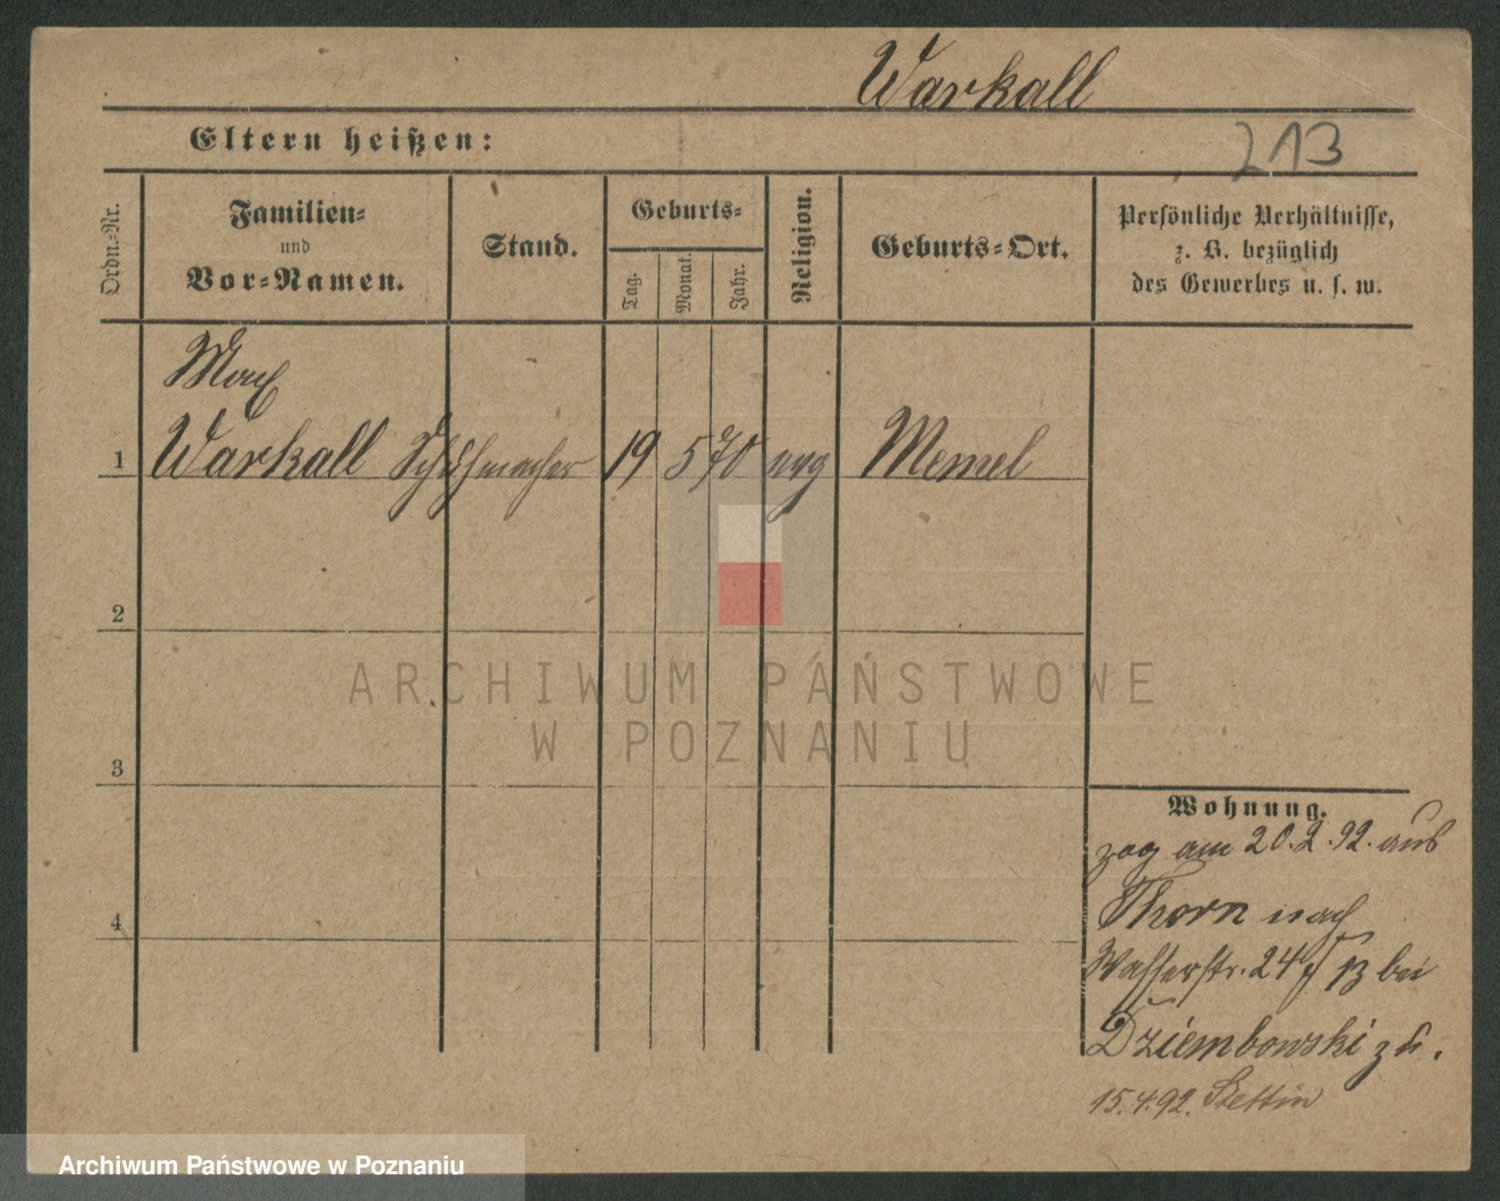 Warkall
213
Eltern heißen:
Ordn.-Nr.
Familien-
und
Vor-Namen.
Stand.
Geburts-
Tag.
Monat.
Jahr.
Religion.
Geburts-Ort.
Persönliche Verhältnisse,
z. B. bezüglich
des Gewerbes u. s. w.
Max
1 Warkall Schuhmacher 19 5 70 evg Memel
2
3
4
Wohnung.
zog am 20.2.92. aus
Thorn nach
Wasserstr. 24 bei
Dziembowski zu.
15.4.92. Stettin
ARCHIWUM PAŃSTWOWE
W POZNANIU
Archiwum Państwowe w Poznaniu